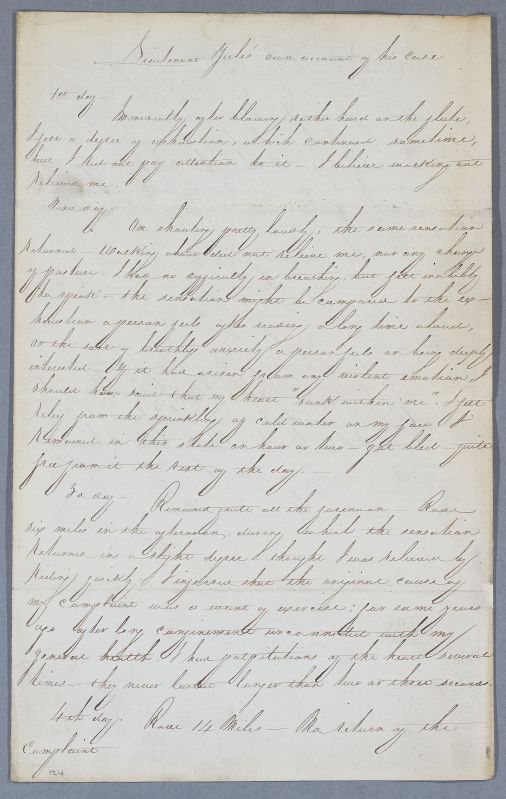 Lieutenant Yule's own account of his case
1st day -
Immediately after blowing rather hard on the flute,
I felt a degree of exhaustion, which continued sometime,
but I did not pay attention to it - I believe walking out
relieved me.
2nd day -
On shouting pretty loudly; the same sensation
returned - Walking about did not relieve me, nor any change
of posture I had no difficulty in breathing, but felt inability
to speak - the sensation might be compared to the ex-
haustion a person feels after reading a long time aloud,
or the sort of breathless anxiety a person feels on being deeply
interested. If it had arisen from any violent emotion, I
should have said that my heart "sunk within me". I felt
relief from the sprinkling of cold water on my face I
remained in this state an hour or two - got bled - quite
free from it the rest of the day. -
3d day - Remained quite all the forenoon - Rode
six miles in the afternoon, during which the sensation
returned in a slight degree I thought I was relieved by
riding quickly I inferred that the original cause of
my complaint was a want of exercise; for some years
ago after long confinement unconnected with my
general health I had palpitations of the heart several
times - they never lasted longer than two or three seconds.
4th day. Rode 14 Miles - No return of the
Complaint
124